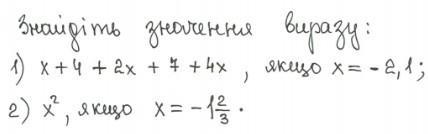 Знайдіть значення виразу:
1) x + 4 + 2x + 7 + 4x , якщо x = - 2,1;
2) x², якщо x = - 1 2/3 .